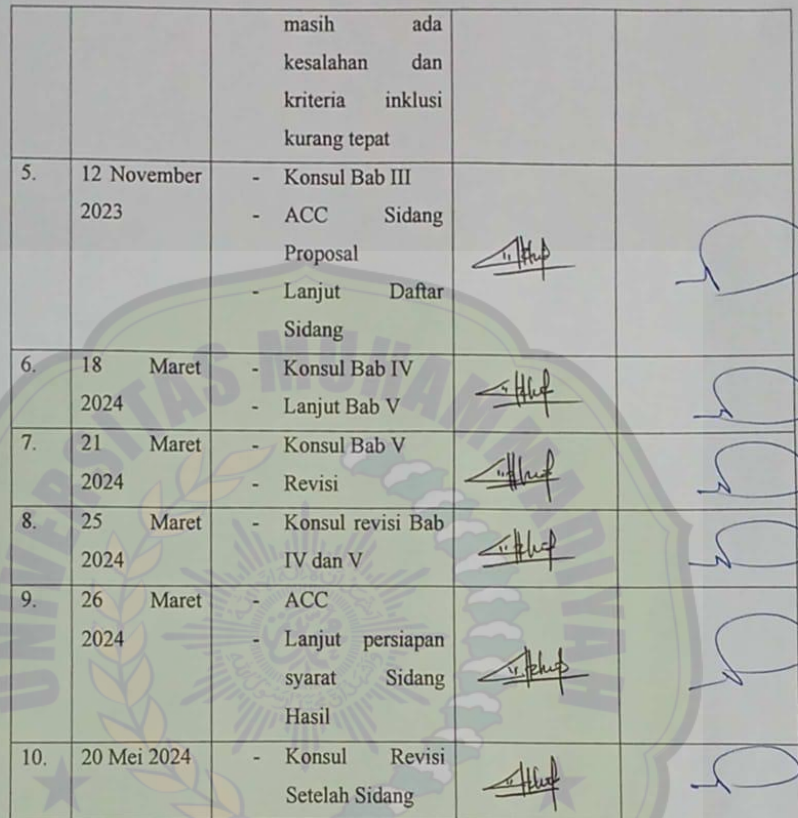 masih ada
kesalahan dan
kriteria inklusi
kurang tepat
5. 12 November - Konsul Bab III
2023 - ACC Sidang
Proposal
- Lanjut Daftar
Sidang
6. 18 Maret - Konsul Bab IV
2024 - Lanjut Bab V
7. 21 Maret - Konsul Bab V
2024 - Revisi
8. 25 Maret - Konsul revisi Bab
2024 IV dan V
9. 26 Maret - ACC
2024 - Lanjut persiapan
syarat Sidang
Hasil
10. 20 Mei 2024 - Konsul Revisi
Setelah Sidang
UNIVERSITAS MUHAMMADIYAH